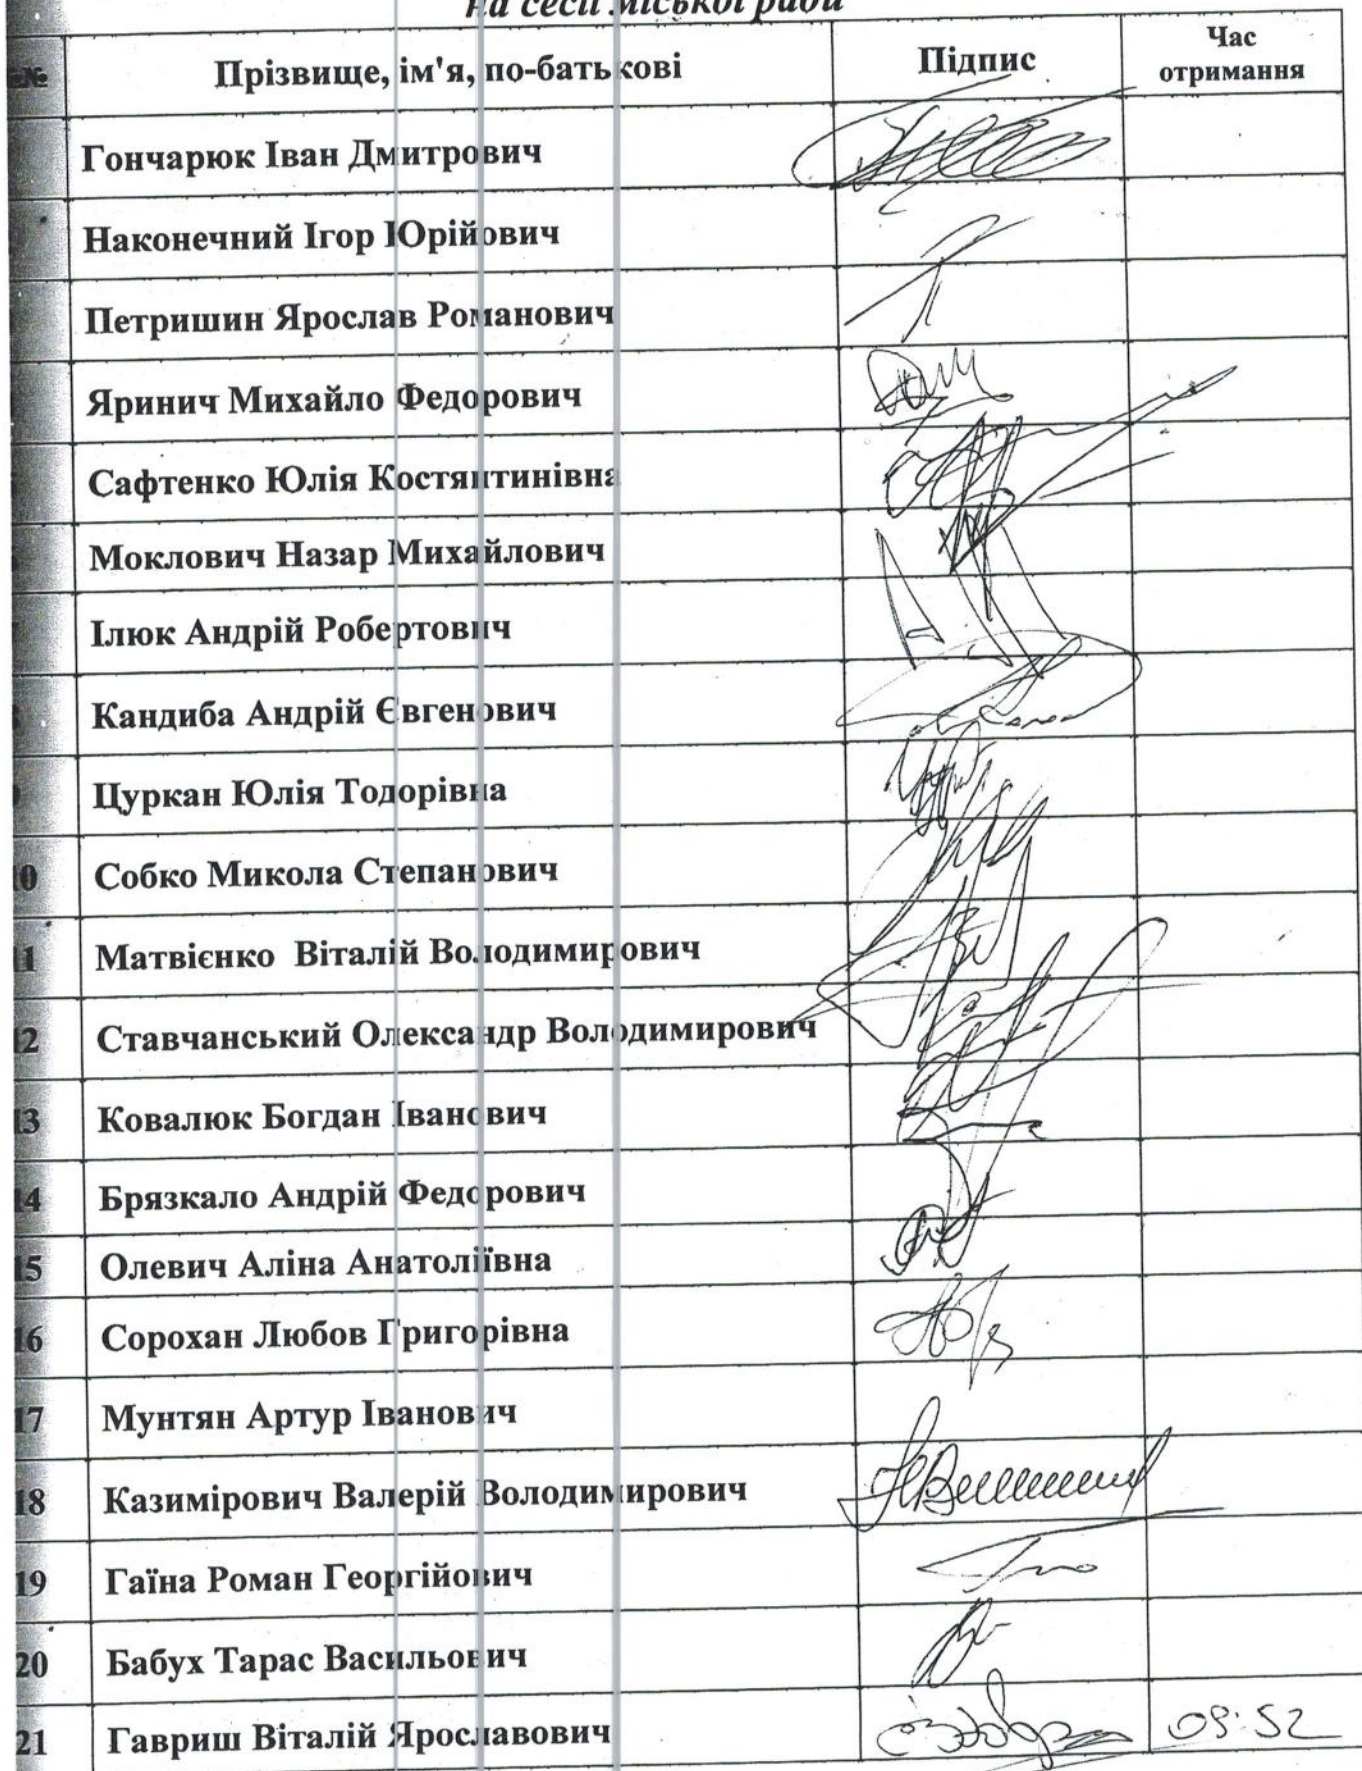 на сесії міської ради
№ Прізвище, ім'я, по-батькові Підпис Час отримання
Гончарюк Іван Дмитрович
Наконечний Ігор Юрійович
Петришин Ярослав Романович
Яринич Михайло Федорович
Сафтенко Юлія Костянтинівна
Моклович Назар Михайлович
7 Ілюк Андрій Робертович
8 Кандиба Андрій Євгенович
9 Цуркан Юлія Тодорівна
10 Собко Микола Степанович
11 Матвієнко Віталій Володимирович
12 Ставчанський Олександр Володимирович
13 Ковалюк Богдан Іванович
14 Брязкало Андрій Федорович
15 Олевич Аліна Анатоліївна
16 Сорохан Любов Григорівна
17 Мунтян Артур Іванович
18 Казимірович Валерій Володимирович
19 Гаїна Роман Георгійович
20 Бабух Тарас Васильович
21 Гавриш Віталій Ярославович 09:52